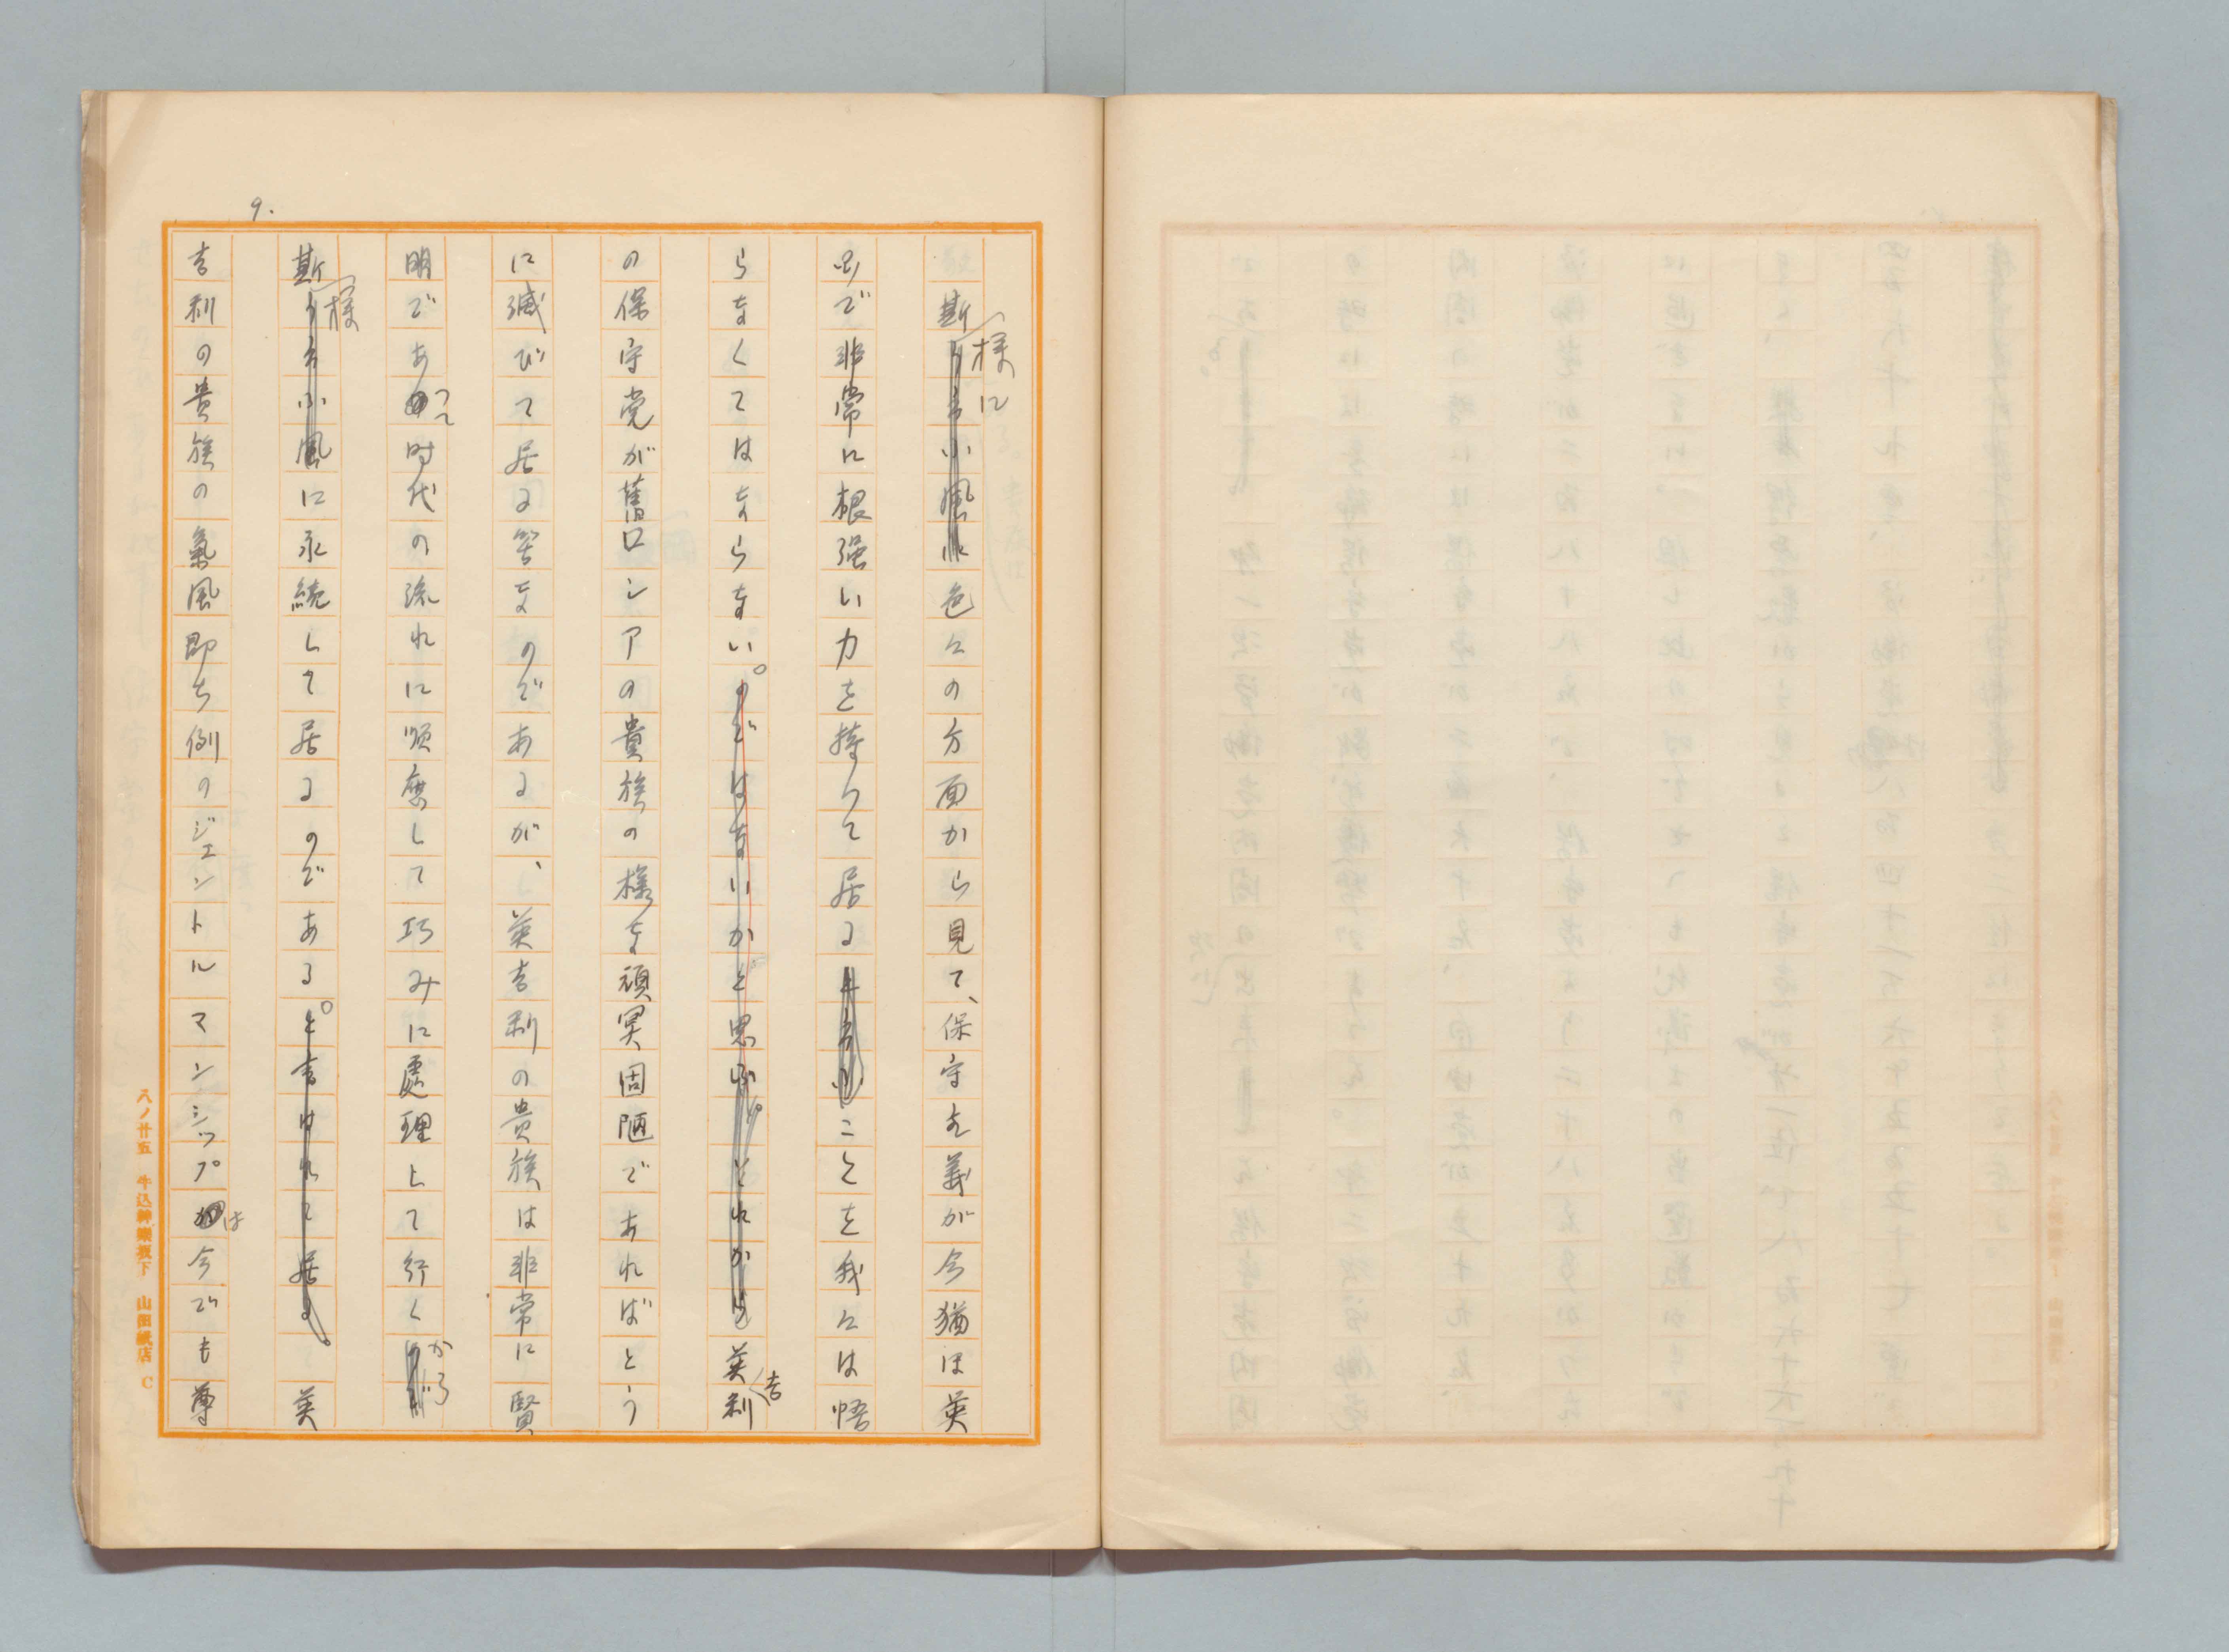 9.
斯様に色々の方面から見て、保守主義が今猶ほ英
国で非常に根強い力を持って居ることを我々は悟
らなくてはならない。英吉利
の保守党が舊ロシアの貴族の様な頑冥固陋であればとう
に滅びて居る筈なのであるが、英吉利の貴族は非常に賢
明であって時代の流れに順應して巧みに處理して行くから
斯様に永続して居るのである。英
吉利の貴族の氣風即ち例のジェントルマンシップは今でも尊
八ノ廿五 牛込神樂坂下 山田紙店 C